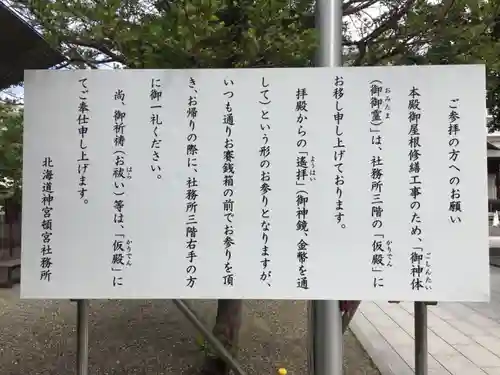 ご参拝の方へのお願い
本殿御屋根修繕工事のため、「御神体(ごしんたい)
(御御霊(おみたま))」は、社務所三階の「仮殿(かりでん)」に
お移し申し上げております。
拝殿からの「遙拝(ようはい)」(御神鏡、金幣を通
して)という形のお参りとなりますが、
いつも通りお賽銭箱の前でお参りを頂
き、お帰りの際に、社務所三階右手の方
に御一礼ください。
尚、御祈祷(お祓(はら)い)等は、「仮殿(かりでん)」に
てご奉仕申し上げます。
北海道神宮頓宮社務所